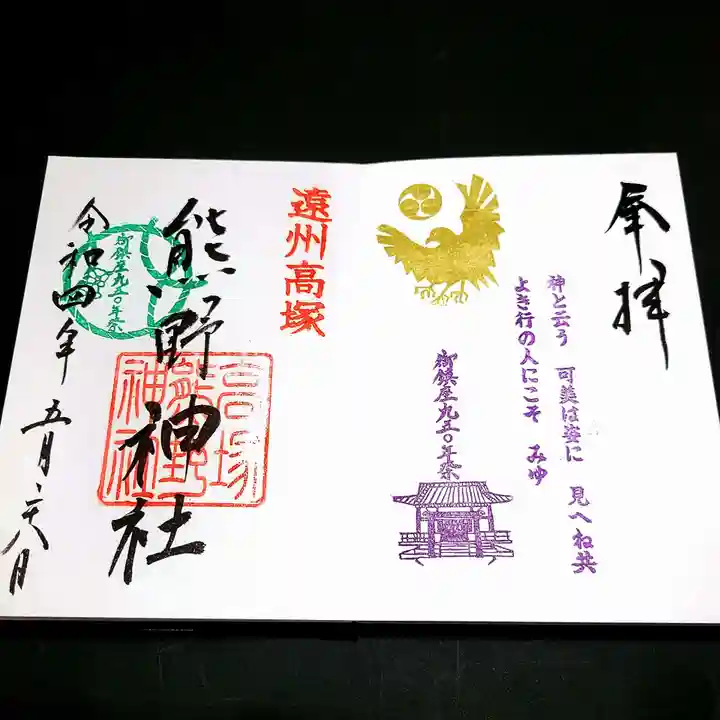 奉拝
神と云う　可美は姿に　見へね共
よき行の人にこそ　みゆ
御鎮座九五〇年祭
遠州高塚
熊野神社
高塚
熊野
神社
御鎮座九五〇年祭
令和四年　五月二十八日